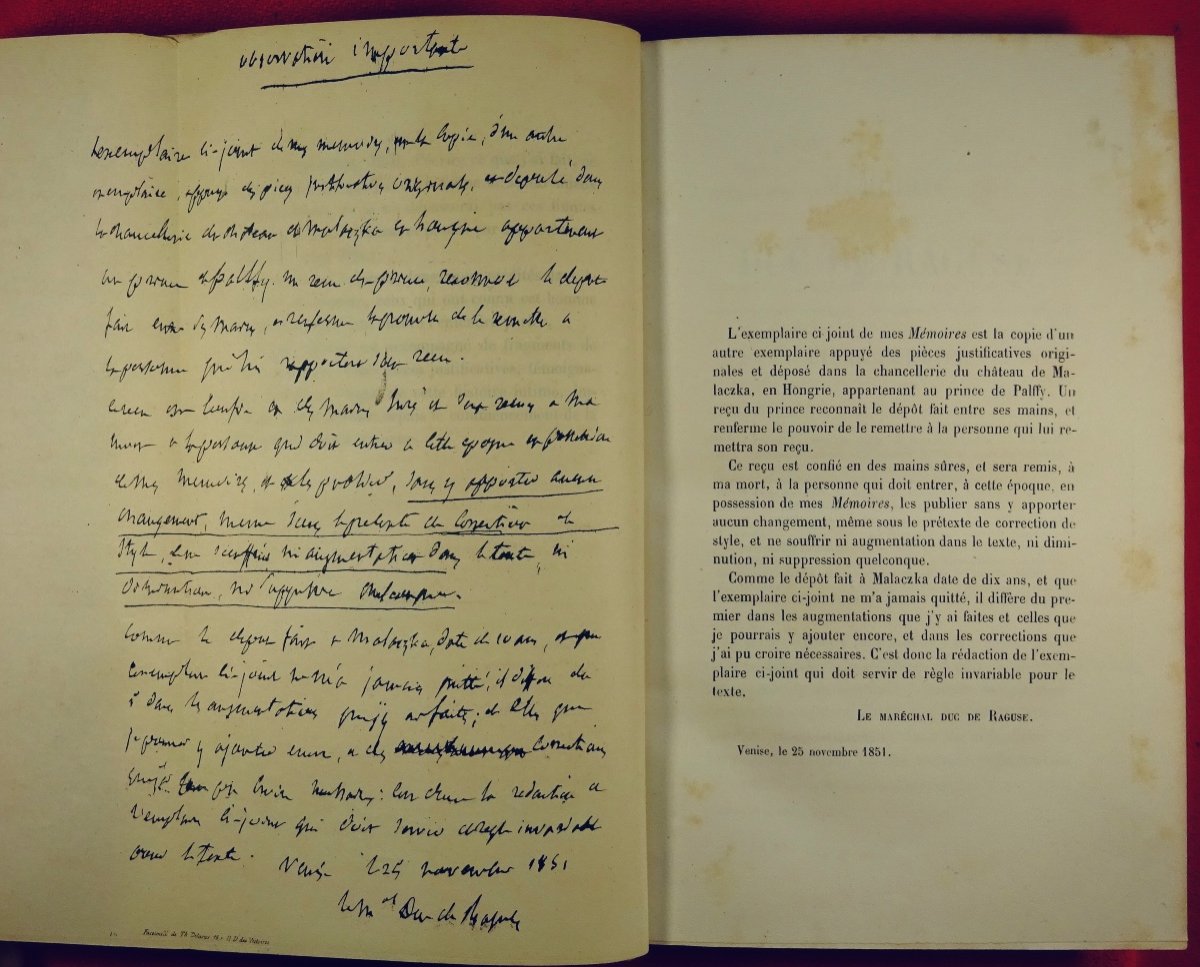 observation importante
l'exemplaire ci-joint de mes memoires, est la copie, d'un autre
exemplaire, appuyé des pieces justificatives originales, et deposé dans
la chancellerie du chateau de Malaczka en hongrie appartenant
au prince de palffy. un recu du prince, reconnoit le depot
fait entre ses mains, et renferme le pouvoir de le remettre a
la personne qui lui rapportera son recu.
ce recu est confié en des mains sures et sera remis a ma
mort a la personne qui doit entrer a cette epoque en possession
de mes memoires, et les publier, sans y apporter aucun
changement, meme sous le pretexte de correction de
style, et ne souffrir ni augmentation dans le texte, ni
diminution, ni suppression quelconque.
comme le depot fait a Malaczka, date de 10 ans, et que
l'exemplaire ci-joint ne m'a jamais quitté, il differe du
1er dans les augmentations que j'y ai faites, et celles que
je pourrai y ajouter encore, et des corrections
que j'ai pu croire necessaires: c'est donc la redaction de
l'exemplaire ci-joint qui doit servir de regle invariable
pour le texte. Venise le 25 novembre 1851
le Mal Duc de Raguse
Facsimilé de Th. Delarue
L'exemplaire ci-joint de mes Mémoires est la copie d'un
autre exemplaire appuyé des pièces justificatives origi-
nales et déposé dans la chancellerie du château de Ma-
laczka, en Hongrie, appartenant au prince de Palffy. Un
reçu du prince reconnaît le dépôt fait entre ses mains, et
renferme le pouvoir de le remettre à la personne qui lui re-
mettra son reçu.
Ce reçu est confié en des mains sûres, et sera remis, à
ma mort, à la personne qui doit entrer, à cette époque, en
possession de mes Mémoires, les publier sans y apporter
aucun changement, même sous le prétexte de correction de
style, et ne souffrir ni augmentation dans le texte, ni dimi-
nution, ni suppression quelconque.
Comme le dépôt fait à Malaczka date de dix ans, et que
l'exemplaire ci-joint ne m'a jamais quitté, il diffère du pre-
mier dans les augmentations que j'y ai faites et celles que
je pourrais y ajouter encore, et dans les corrections que
j'ai pu croire nécessaires. C'est donc la rédaction de l'exem-
plaire ci-joint qui doit servir de règle invariable pour le
texte.
Le maréchal duc de Raguse.
Venise, le 25 novembre 1851.